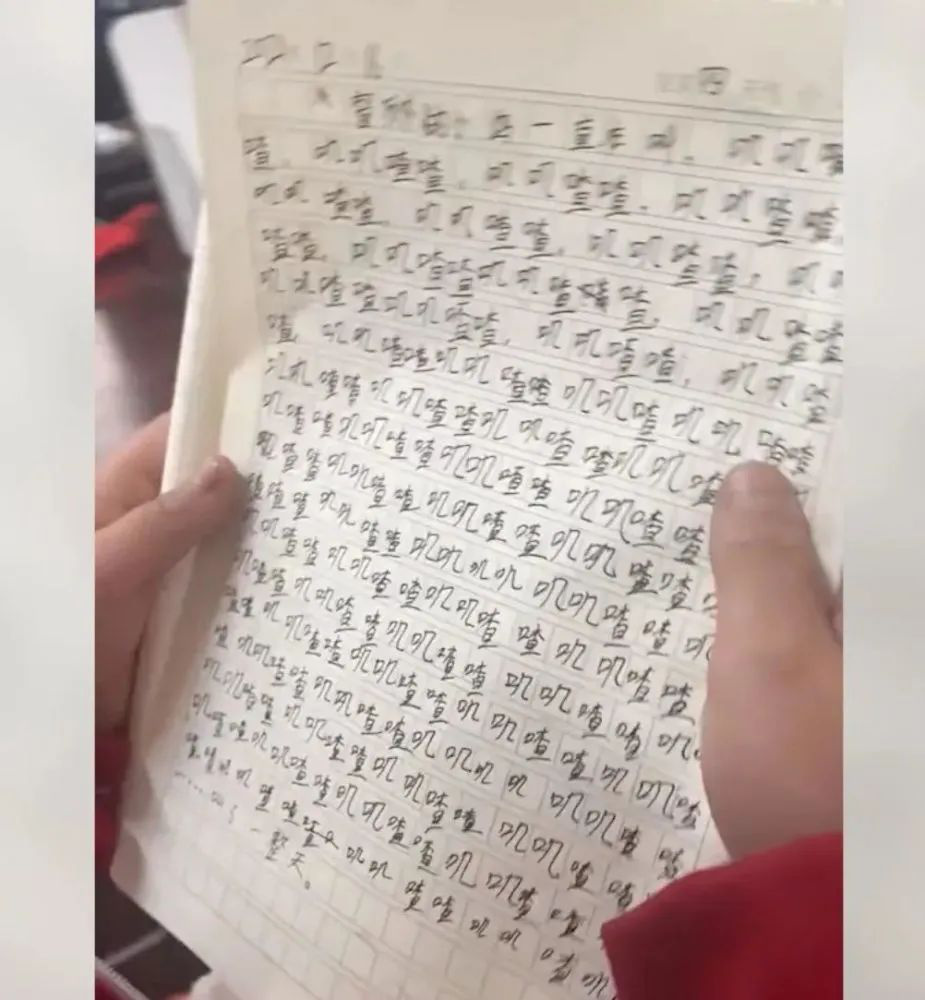 四
喜鹊 一直在叫,叽叽喳
喳,叽叽喳喳,叽叽喳喳,叽叽喳喳,
叽叽喳喳,叽叽喳喳,叽叽喳喳,叽叽
喳喳,叽叽喳喳叽叽喳喳喳,叽叽喳喳
叽叽喳喳叽叽喳喳,叽叽喳喳,叽叽喳
喳,叽叽喳喳叽叽喳喳叽叽喳叽叽喳喳
叽叽喳喳叽叽喳喳叽叽喳喳叽叽喳
叽喳喳叽叽喳喳叽叽喳喳叽叽喳喳
叽喳喳叽叽喳喳叽叽喳喳叽叽喳喳
喳喳叽叽喳喳叽叽叽叽叽叽喳喳叽
叽叽喳喳叽叽喳喳叽叽喳喳叽叽喳喳
叽喳喳叽叽喳喳叽叽喳喳叽叽喳喳叽
喳叽叽喳喳叽叽喳喳叽叽喳喳叽叽喳
喳叽叽喳喳叽叽喳喳叽叽叽叽叽叽喳喳
叽叽喳喳叽叽喳喳叽叽喳喳叽叽喳喳
叽喳喳叽叽叽喳喳叽叽喳喳叽叽喳喳
喳喳叽叽喳喳喳叽叽喳喳叽叽喳叽
……叫了一整天。